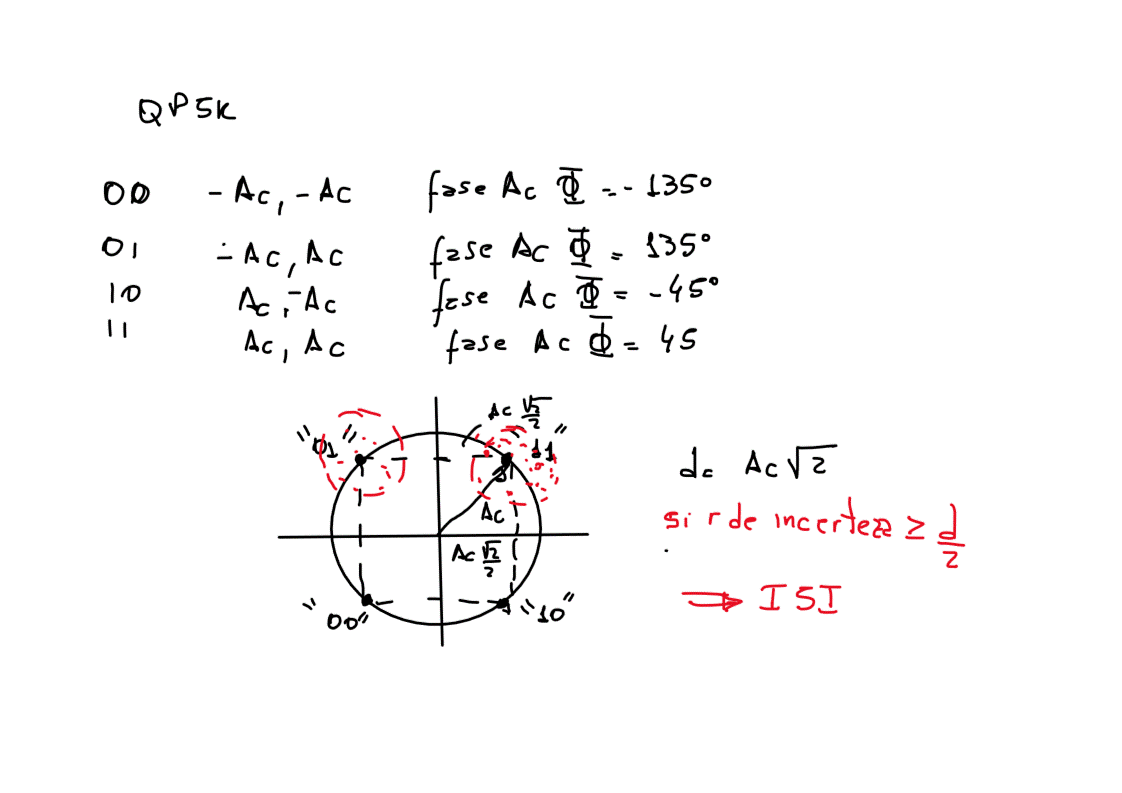 QPSK
00 - Ac, - Ac fase Ac Φ = - 135°
01 - Ac, Ac fase Ac Φ = 135°
10 Ac, -Ac fase Ac Φ = -45°
11 Ac, Ac fase Ac Φ = 45
Ac √2/2
"01" "11"
d= Ac√2
Ac
si r de incerteza ≥ d/2
Ac √2/2
⇒ ISI
"00" "10"